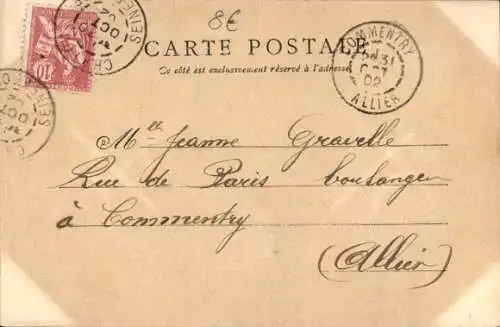 8€
CARTE POSTALE
Ce côté est exclusivement réservé à l'adresse
COMMENTRY
31
OCT
02
ALLIER
10
Mlle Jeanne Gravelle
Rue de Paris boulanger
à Commentry
(Allier)